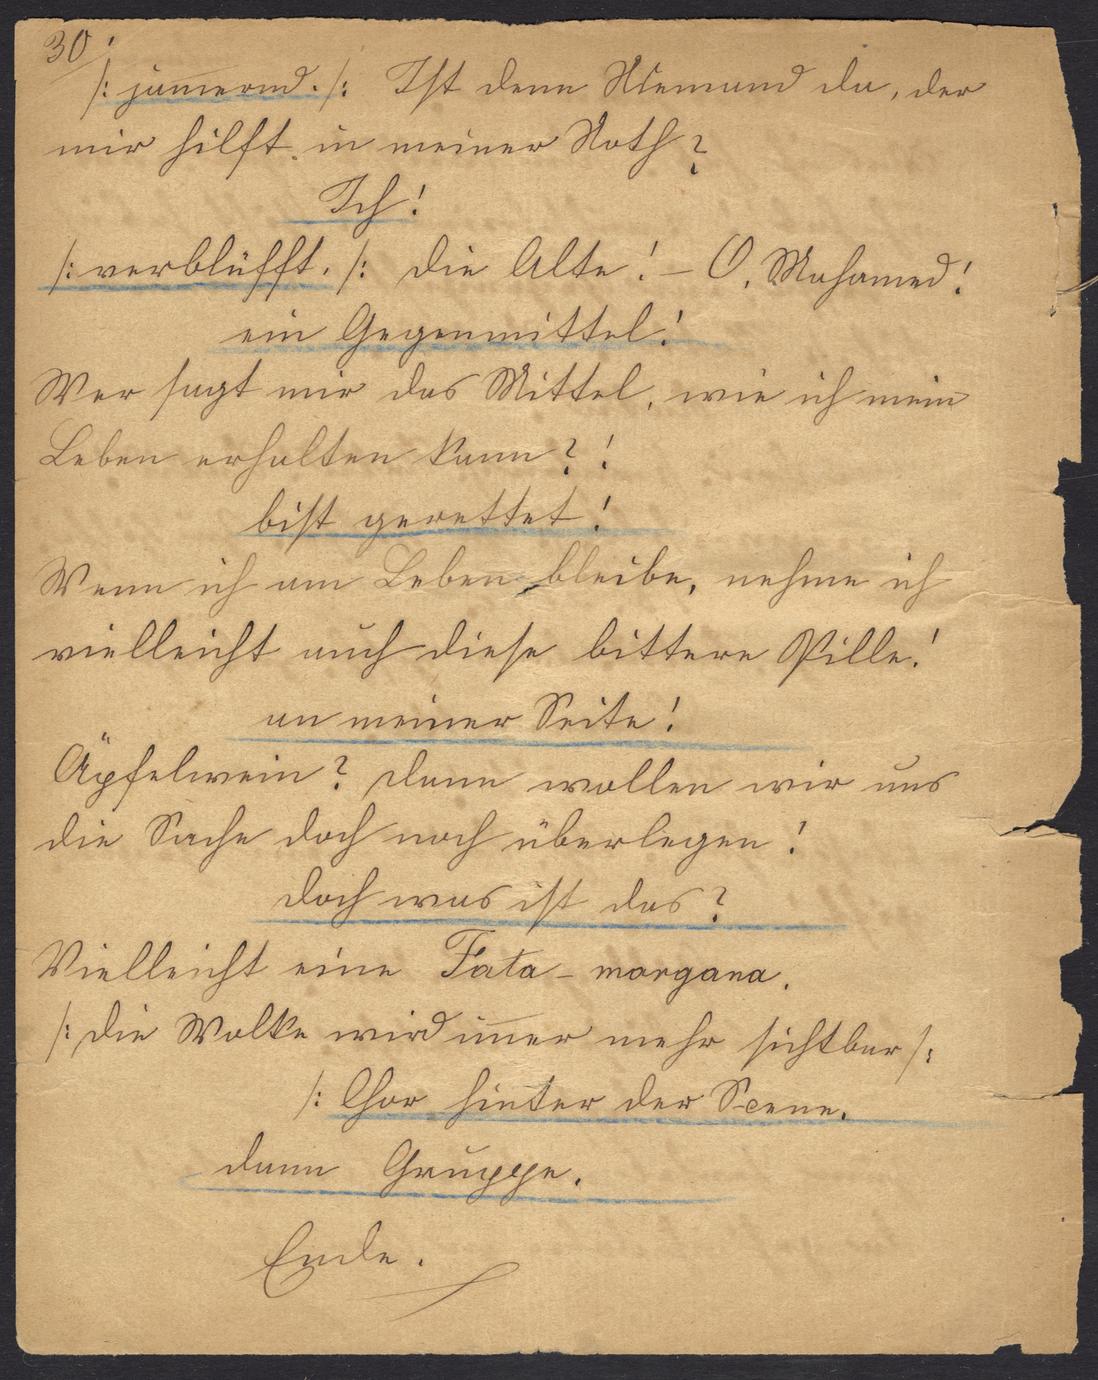 30.
/: jam̄ernd. /: Ist denn Niemand da, der
mir hilft in meiner Noth?
Ich!
/: verblüfft. /: die Alte! – O, Mohamed!
ein Gegenmittel!
Wer sagt mir das Mittel, wie ich mein
Leben erhalten kann?!
bist gerettet!
Wenn ich am Leben bleibe, nehme ich
vielleicht auch diese bittere Pille!
an meiner Seite!
Äpfelwein? dann wollen wir uns
die Sache doch noch überlegen!
doch was ist das?
Vielleicht eine Fata-morgana.
/: die Wolke wird im̄er mehr sichtbar /:
/: Chor hinter der Scene.
dann Gruppe.
Ende.